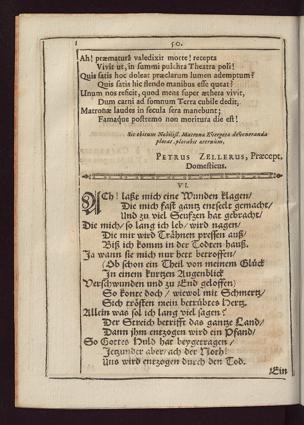 50.
Ah! præmaturâ valedixit morte! recepta
Vivit ut, in summi pulchra Theatra poli!
Quis satis hoc doleat præclarum lumen ademptum?
Quis satis hic flendo manibus esse queat?
Unum nos reficit, quod mens super æthera vivit,
Dum carni ad somnum Terra cubile dedit,
Matronæ laudes in secula sera manebunt;
Famaque postremo non moritura die est!
Sic obitum Nobiliss. Matronæ Evergetæ devenerandæ
plorat, plorabit æternùm,
PETRUS ZELLERUS, Præcept.
Domesticus.
VI.
Ach! laße mich eine Wunden klagen/
Die mich fast gantz entseelt gemacht/
Und zu viel Seufzen hat gebracht/
Die mich/ so lang ich leb/ wird nagen/
Die mir wird Thränen pressen auß/
Biß ich komm in der Todten hauß.
Ja wann sie mich nur hett betroffen/
Ob schon ein Theil von meinem Glück
In einem kurtzen Augenblick
Verschwunden und zu End geloffen;
So konte doch/ wiewol mit Schmertz/
Sich trösten mein betrübtes Hertz.
Allein was sol ich lang viel sagen?
Der Streich betrifft das gantze Land/
Dann jhm entzogen wird ein Pfand/
So Gottes Huld har beygetragen/
Jetzunder aber/ ach der Noth!
Uns wird entzogen durch den Tod.
Ein